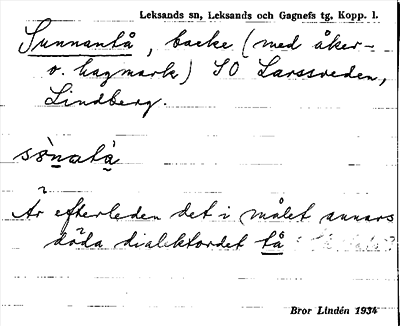 Leksands sn, Leksands och Gagnefs tg, Kopp. l.
Sunnantå, backe (med åker-
o. hagmark) SO Larssveden,
Lindberg.
Är efterleden det i målet annars
döda dialektordet tå
Bror Lindén 1934